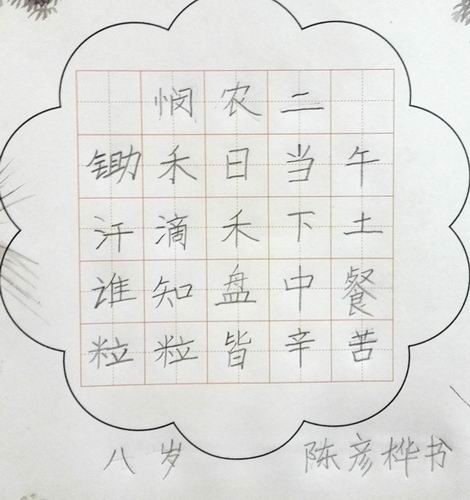 悯农二
锄禾日当午
汗滴禾下土
谁知盘中餐
粒粒皆辛苦
八岁 陈彦桦书